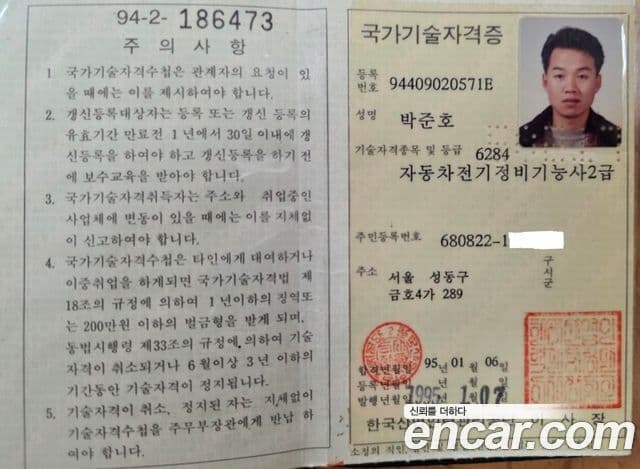 94-2- 186473
주 의 사 항
1 국가기술자격수첩은 관계자의 요청이 있
을 때에는 이를 제시하여야 합니다.
2. 갱신등록대상자는 등록 또는 갱신 등록의
유효기간 만료전 1년에서 30일 이내에 갱
신등록을 하여야 하고 갱신등록을 하기 전
에 보수교육을 받아야 합니다.
3. 국가기술자격취득자는 주소와 취업중인
사업체에 변동이 있을 때에는 이를 지체없
이 신고하여야 합니다.
4. 국가기술자격수첩은 타인에게 대여하거나
이중취업을 하게되면 국가기술자격법 제
18조의 규정에 의하여 1년이하의 징역또
는 200만원 이하의 벌금형을 받게 되며,
동법시행령 제33조의 규정에 의하여 기술
자격이 취소되거나 6월이상 3년 이하의
기간동안 기술자격이 정지됩니다.
5. 기술자격이 취소, 정지된 자는 지체없이
기술자격수첩을 주무부장관에게 반납 하
여야 합니다.
국가기술자격증
등록
번호 94409020571E
성명 박준호
기술자격종목 및 등급 6284
자동차전기정비기능사2급
주민등록번호 680822-1
구시군
주소 서울 성동구
금호4가 289
합격년월일 95년 01월 06일
등록년월일 년 월 일
발행년월일 1995. 1.07
신뢰를 더하다
한국산 이 사 장
소정의 직인,
encar.com